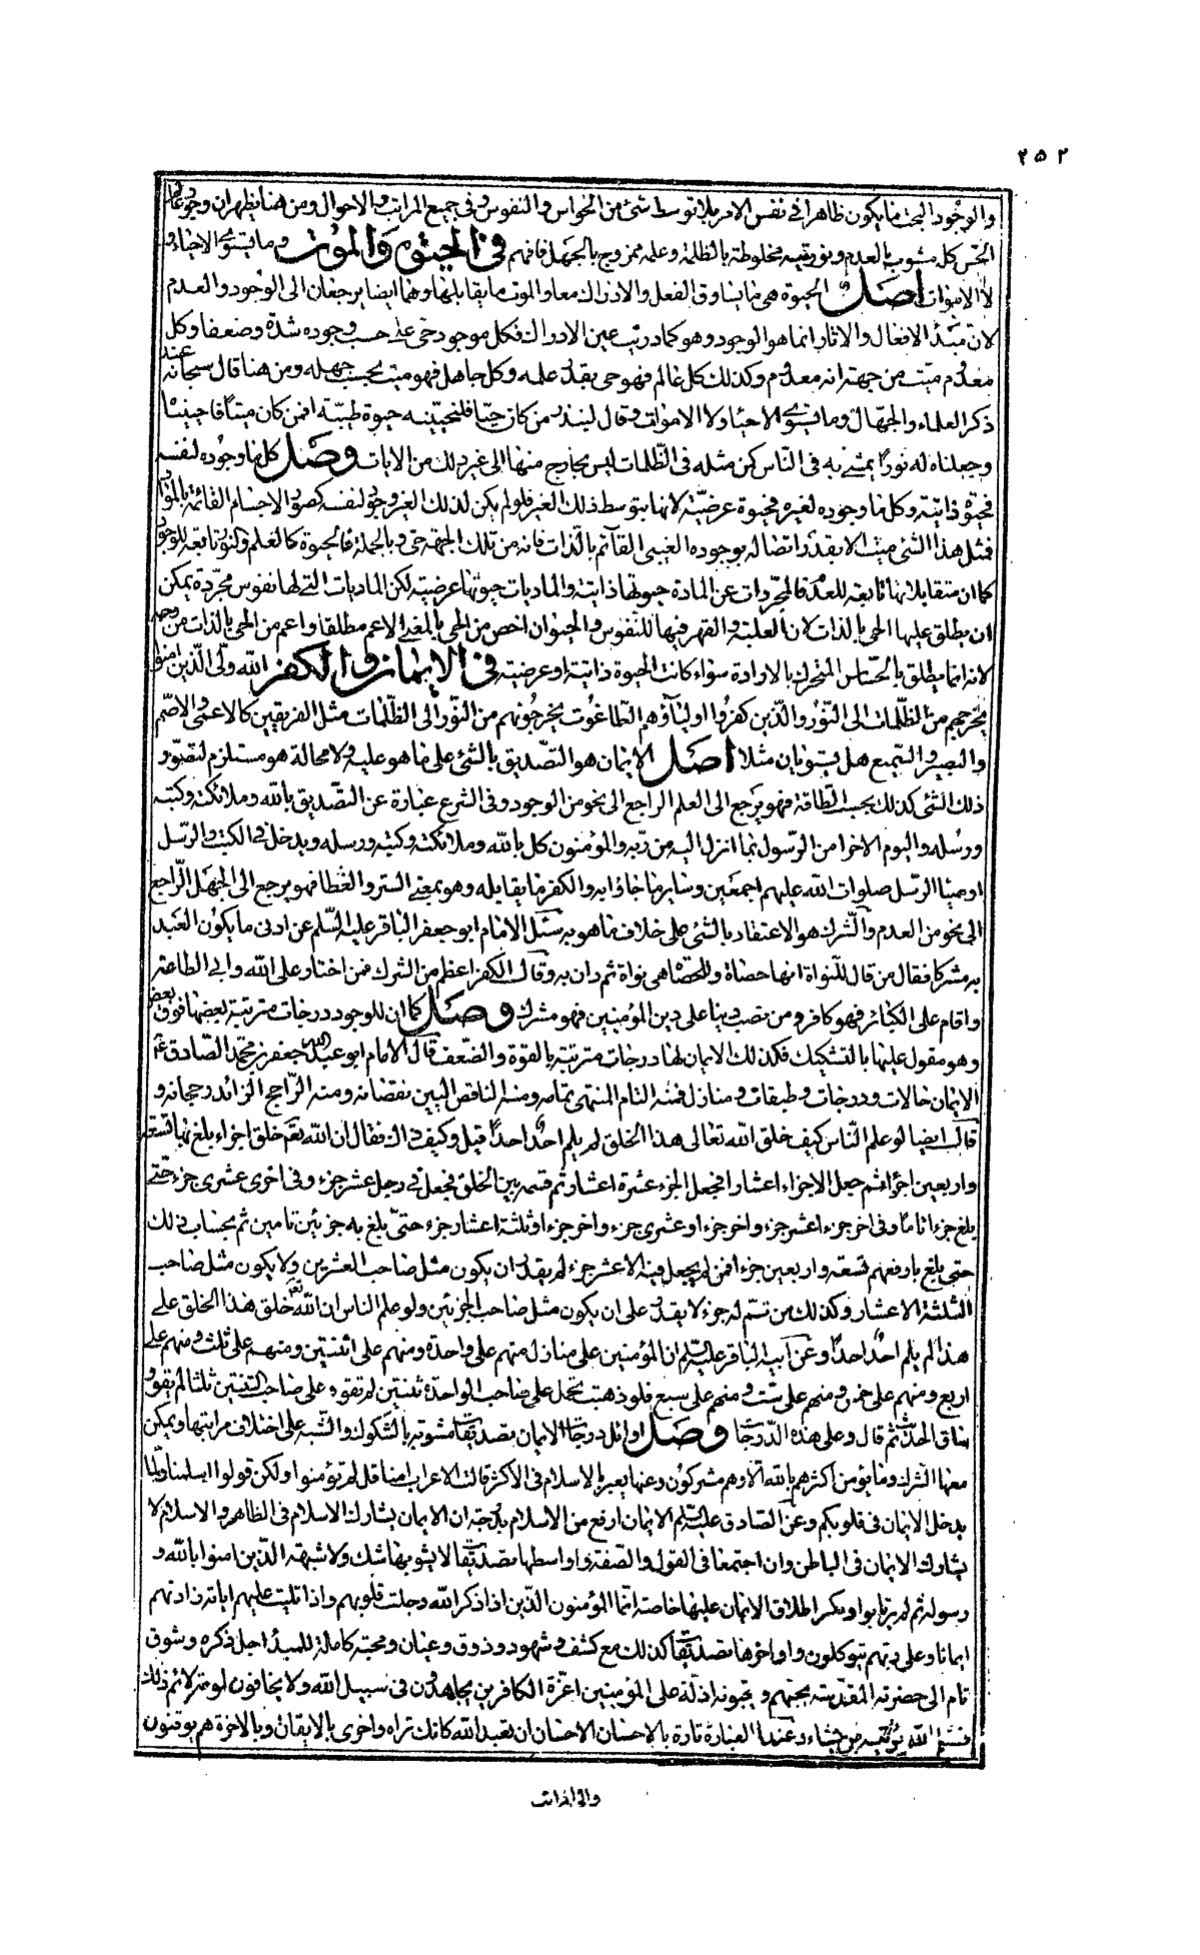 ٢٥٢
والوجود البحت ما يكون ظاهرا في نفس الامر بلا توسط شئ من الحواس والنفوس وفي جميع المراتب والاحوال ومن هنا يظهر ان وجود عالم
الحس كله مشوب بالعدم ونوريته مخلوطة بالظلمة وعلمه ممزوج بالجهل فافهم في الحيوة والموت وما يستوي الاحياء و
لا الاموات اصل الحيوة هي ما يساوق الفعل والادراك معا والموت ما يقابلها وهما ايضا يرجعان الى الوجود والعدم
لان مبدأ الافعال والاثار انما هو الوجود وهو كما دريت عين الادراك فكل موجود حي على حسب وجوده شدة وضعفا وكل
معدوم ميت من جهة انه معدوم وكذلك كل عالم فهو حي بقدر علمه وكل جاهل فهو ميت بحسب جهله ومن هنا قال سبحانه عند
ذكر العلماء والجهال وما يستوي الاحياء ولا الاموات وقال لينذر من كان حيا فلنحيينه حيوة طيبة افمن كان ميتا فاحييناه
وجعلنا له نورا يمشي به في الناس كمن مثله في الظلمات ليس بخارج منها الى غير ذلك من الايات وصل كل ما وجوده لنفسه
فحيوته ذاتية وكل ما وجوده لغيره فحيوته عرضية لانها بتوسط ذلك الغير فلو لم يكن لذلك الغير وجود لنفسه كصور الاجسام القائمة بالمواد
فمثل هذا الشئ ميت الا بقدر اتصاله بوجوده الغيبي القائم بالذات فانه من تلك الجهة حي وبالجملة فالحيوة كالعلم والنور تابعة للوجود
كما ان متقابلاتها تابعة للعدم فالمجردات عن المادة حيوتها ذاتية والماديات حيوتها عرضية لكن الماديات التي لها نفوس مجردة يمكن
ان يطلق عليها الحي بالذات لان الغلبة والقهر فيها للنفوس والحيوان اخص من الحي بالمعنى الاعم مطلقا واعم من الحي بالذات من وجه
لانه انما يطلق بالحساس المتحرك بالارادة سواء كانت الحيوة ذاتية او عرضية في الايمان والكفر الله ولي الذين امنوا
يخرجهم من الظلمات الى النور والذين كفروا اولياؤهم الطاغوت يخرجونهم من النور الى الظلمات مثل الفريقين كالاعمى والاصم
والبصير والسميع هل يستويان مثلا اصل الايمان هو التصديق بالشئ على ما هو عليه ولا محالة هو مستلزم لتصور
ذلك الشئ كذلك بحسب الطاقة فهو يرجع الى العلم الراجع الى نحو من الوجود وفي الشرع عبارة عن التصديق بالله وملائكته وكتبه
ورسله واليوم الاخر امن الرسول بما انزل اليه من ربه والمؤمنون كل بالله وملائكته وكتبه ورسله ويدخل في الكتب والرسل
اوصياء الرسل صلوات الله عليهم اجمعين وساير ما جاؤا به والكفر ما يقابله وهو بمعنى الستر والغطا فهو يرجع الى الجهل الراجع
الى نحو من العدم والشرك هو الاعتقاد بالشئ على خلاف ما هو به سئل الامام ابو جعفر الباقر عليه السلم عن ادنى ما يكون العبد
به مشركا فقال من قال للنواة انها حصاة وللحصاة هي نواة ثم دان به وقال الكفر اعظم من الشرك فمن اختار على الله وابى الطاعة
واقام على الكبائر فهو كافر ومن نصب دينا على دين المؤمنين فهو مشرك وصل كما ان للوجود درجات مترتبة بعضها فوق بعض
وهو مقول عليها بالتشكيك فكذلك الايمان لها درجات مترتبة بالقوة والضعف قال الامام ابو عبد الله جعفر بن محمد الصادق ع
الايمان حالات ودرجات وطبقات ومنازل فمنه التام المنتهى تمامه ومنه الناقص البين نقصانه ومنه الراجح الزائد رجحانه و
قال ايضا لو علم الناس كيف خلق الله تعالى هذا الخلق لم يلم احد احدا قيل وكيف ذاك فقال ان الله تعم خلق اجزاء بلغ بها تسعة
واربعين جزاء ثم جعل الاجزاء اعشارا فجعل الجزء عشرة اعشار ثم قسمه بين الخلق فجعل في رجل عشر جزء وفي اخرى عشري جزء حتى
بلغ جزءا تاما وفي اخر جزءا عشر جزء واخر جزءا وعشري جزء واخر جزءا وثلثة اعشار جزء حتى بلغ به جزئين تامين ثم بحساب ذلك
حتى بلغ بارفعهم تسعة واربعين جزءا فمن لم يجعل فيه الا عشر جزء لم يقدر ان يكون مثل صاحب العشرين ولا يكون مثل صاحب
الثلثة الاعشار وكذلك من تم له جزء لا يقدر على ان يكون مثل صاحب الجزئين ولو علم الناس ان الله تع خلق هذا الخلق على
هذا لم يلم احد احدا وعن ابيه الباقر عليه السلم ان المؤمنين على منازل منهم على واحدة ومنهم على اثنتين ومنهم على ثلث ومنهم على
اربع ومنهم على خمس ومنهم على ست ومنهم على سبع فلو ذهبت تحمل على صاحب الواحدة ثنتين لم تقوه وعلى صاحب الثنتين ثلثا لم يقو و
ساق الحديث ثم قال وعلى هذه الدرجات وصل اوائل درجات الايمان تصديقات مشوبة بالشكوك والشبه على اختلاف مراتبها ويمكن
معها الشرك وما يؤمن اكثرهم بالله الا وهم مشركون وعنها يعبر بالاسلام في الاكثر قالت الاعراب امنا قل لم تؤمنوا ولكن قولوا اسلمنا ولما
يدخل الايمان في قلوبكم وعن الصادق عليه السلم الايمان ارفع من الاسلام بدرجة ان الايمان يشارك الاسلام في الظاهر والاسلام لا
يشارك الايمان في الباطن وان اجتمعا في القول والصفة واواسطها تصديقات لا يشوبها شك ولا شبهة الذين امنوا بالله و
رسوله ثم لم يرتابوا واكثر اطلاق الايمان عليها خاصة انما المؤمنون الذين اذا ذكر الله وجلت قلوبهم واذا تليت عليهم اياته زادتهم
ايمانا وعلى ربهم يتوكلون واواخرها تصديقات كذلك مع كشف وشهود وذوق وعيان ومحبة كاملة للمبدأ جل ذكره وشوق
تام الى حضرته المقدسة يحبهم ويحبونه اذلة على المؤمنين اعزة على الكافرين يجاهدون في سبيل الله ولا يخافون لومة لائم ذلك
فضل الله يؤتيه من يشاء وعنها العبارة تارة بالاحسان الاحسان ان تعبد الله كانك تراه واخرى بالايقان وبالاخرة هم يوقنون